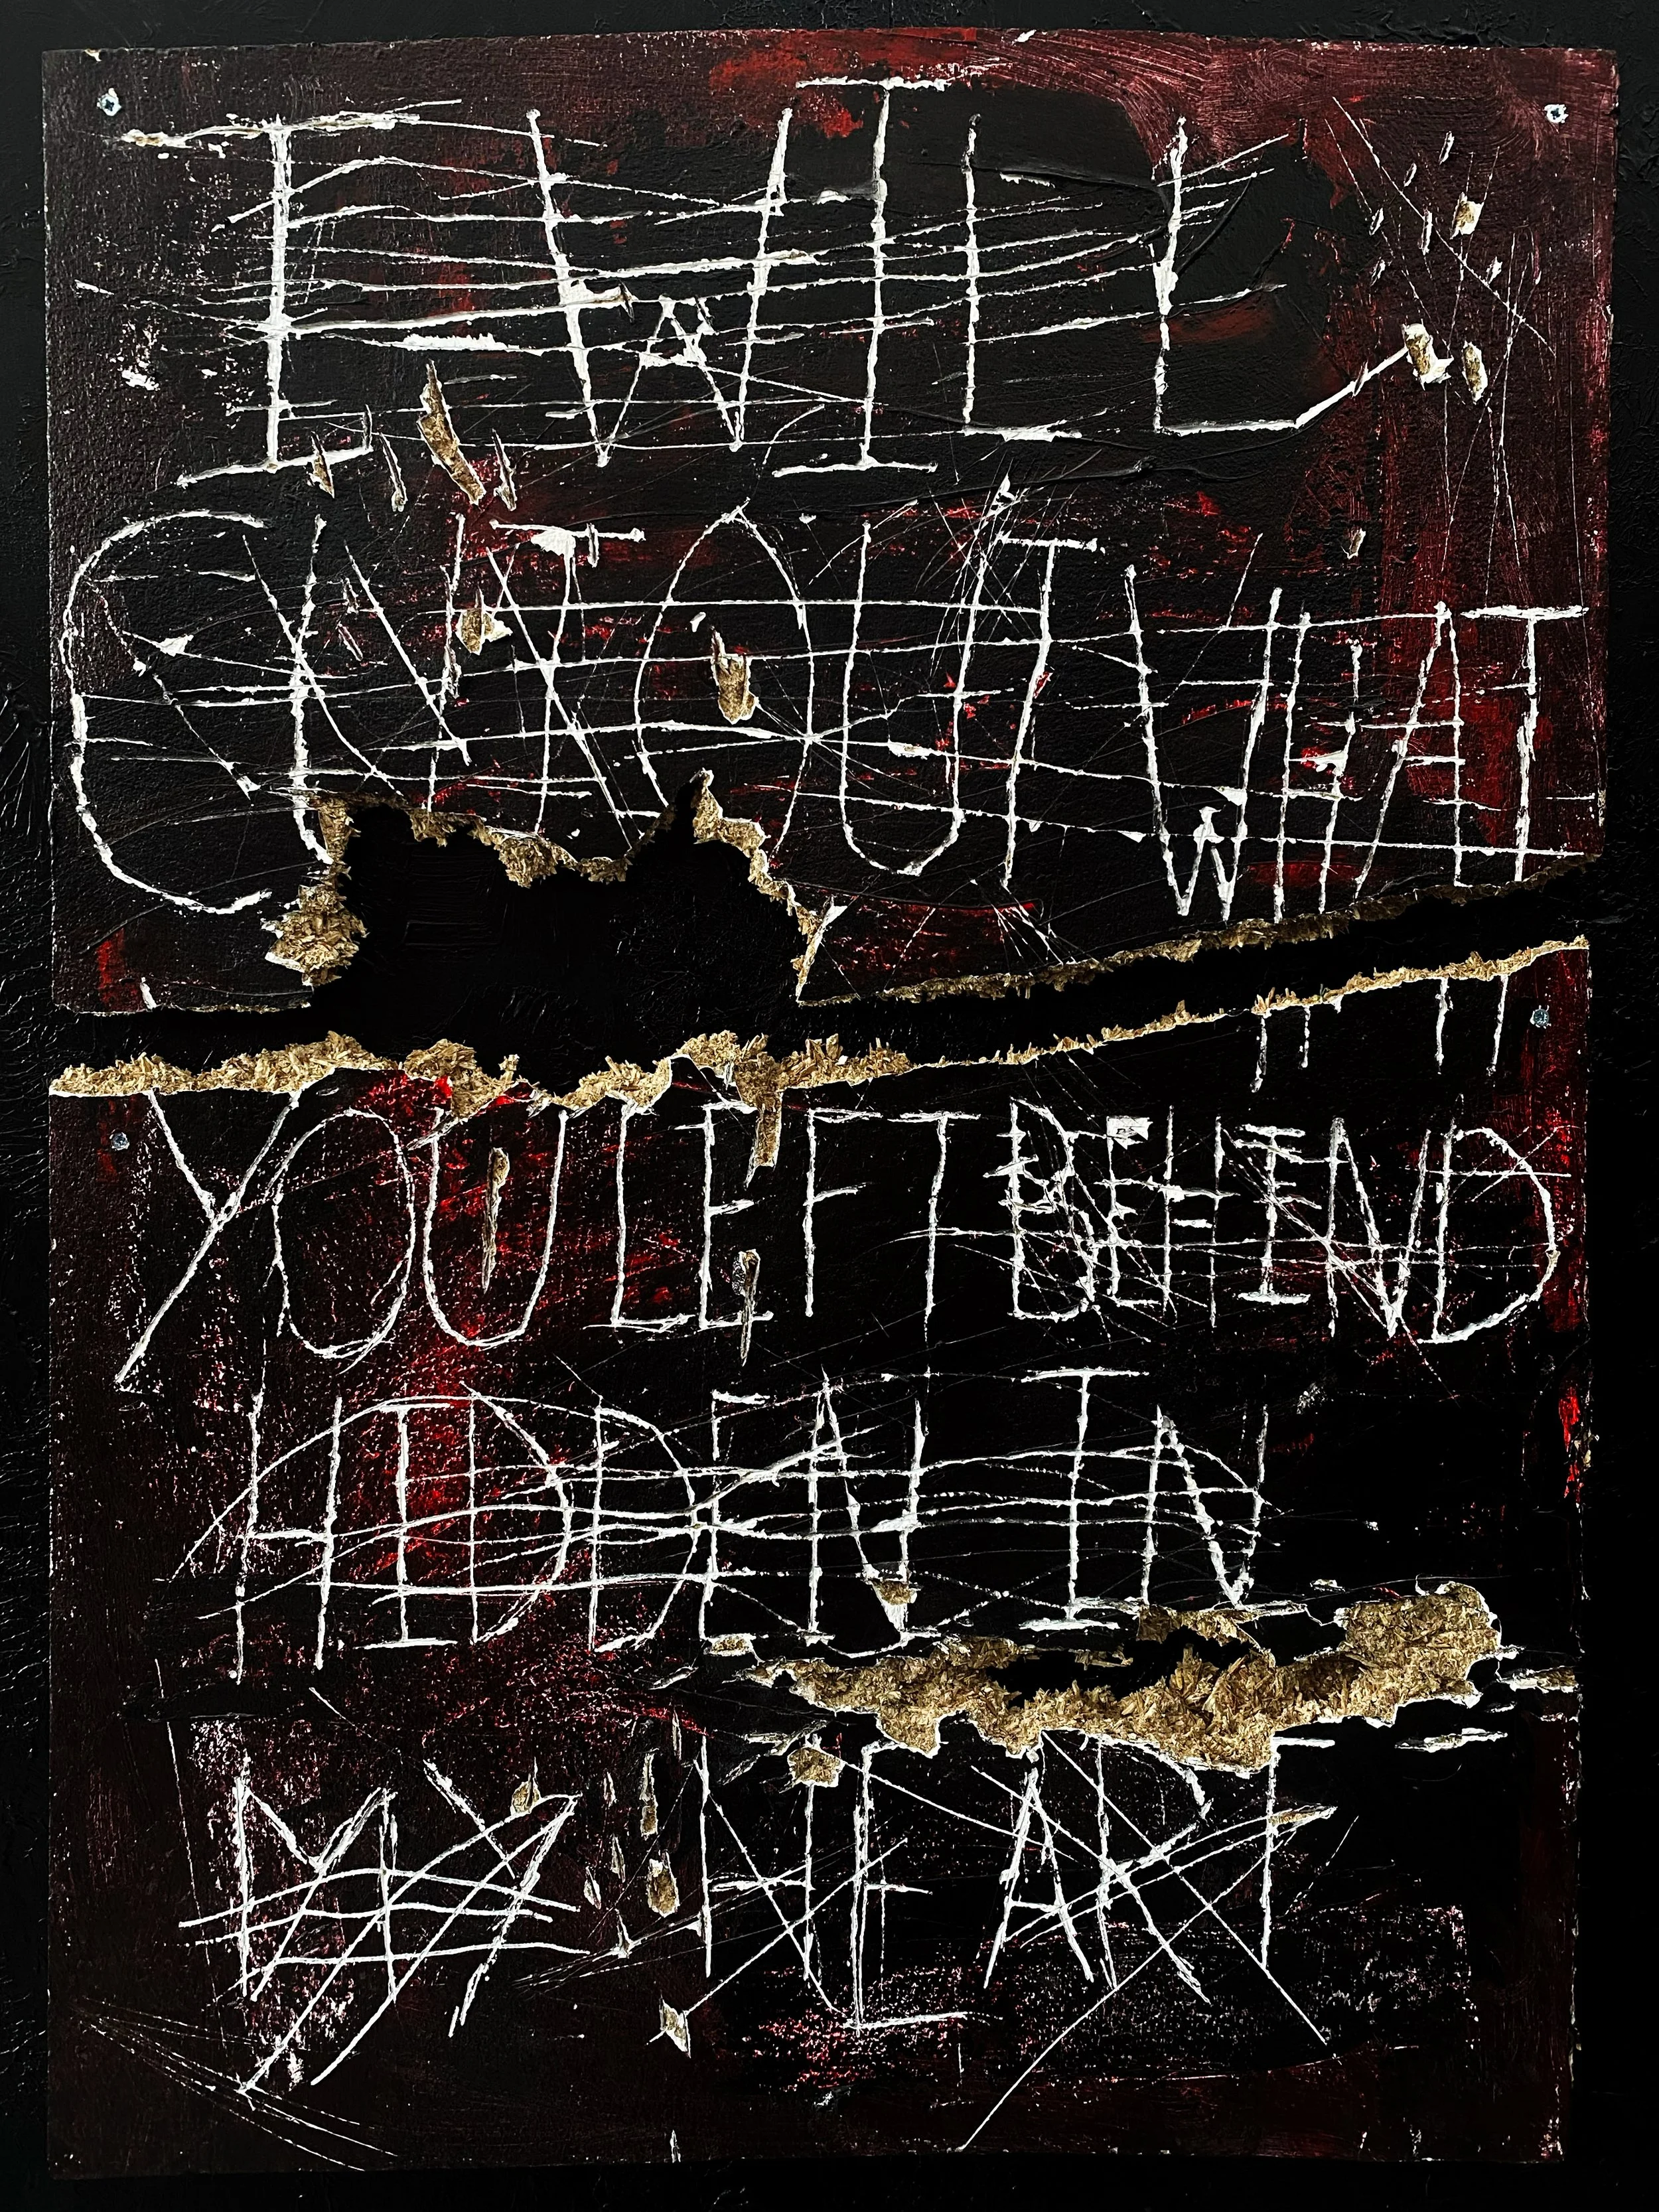 I WILL
CUT OUT WHAT
YOU LEFT BEHIND
HIDDEN IN
MY HEART